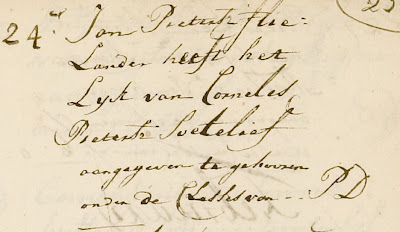 23
24.e Jan Pietersz Flie=
Lander heeft het
Lijk van Cornelis
Pietersz Soetelief
aangegeven te gehooren
onder de Classes van -- PD